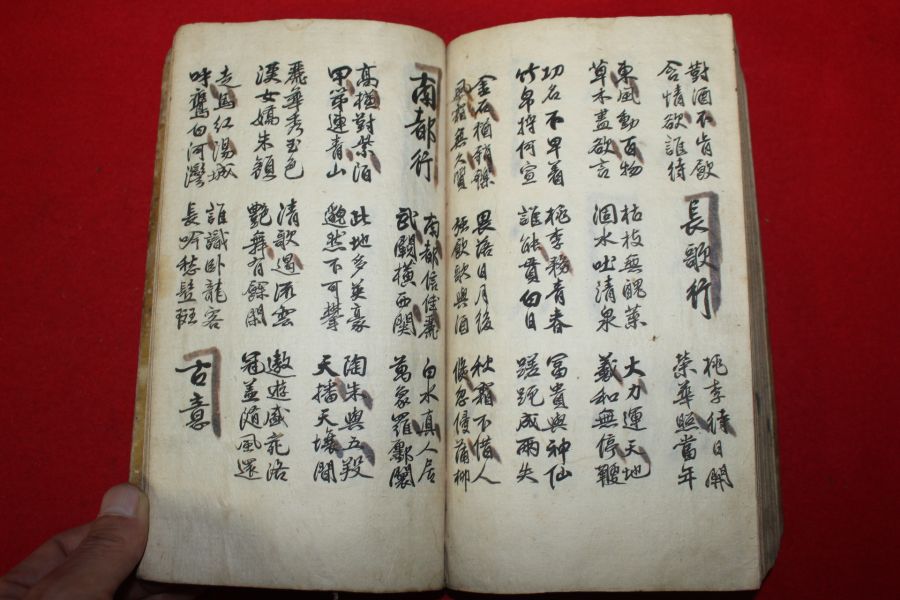 對酒不肯飮
含情欲誰待
長歌行
桃李待日開
榮華照當年
東風動百物
草木盡欲言
枯枝無醜葉
涸水吐清泉
大力運天地
羲和無停鞭
功名不早著
竹帛将何宣
桃李務青春
誰能貰白日
富貴與神仙
蹉跎成兩失
金石猶銷鑠
風霜無久質
畏落日月後
强飮歌與酒
秋霜不惜人
倏忽侵蒲柳
南都行
南都信佳麗
武闕橫西関
白水真人居
萬象羅鄽闤
高樓對紫陌
甲第連青山
此地多英豪
邈然不可攀
陶朱與五羖
天播天壤間
麗華秀玉色
漢女嬌朱顔
清歌遏流雲
艶舞有餘閑
遨遊盛宛洛
冠盖随風還
走馬紅湯城
呼鷹白河灣
誰識卧龍客
長吟愁鬢斑
古意